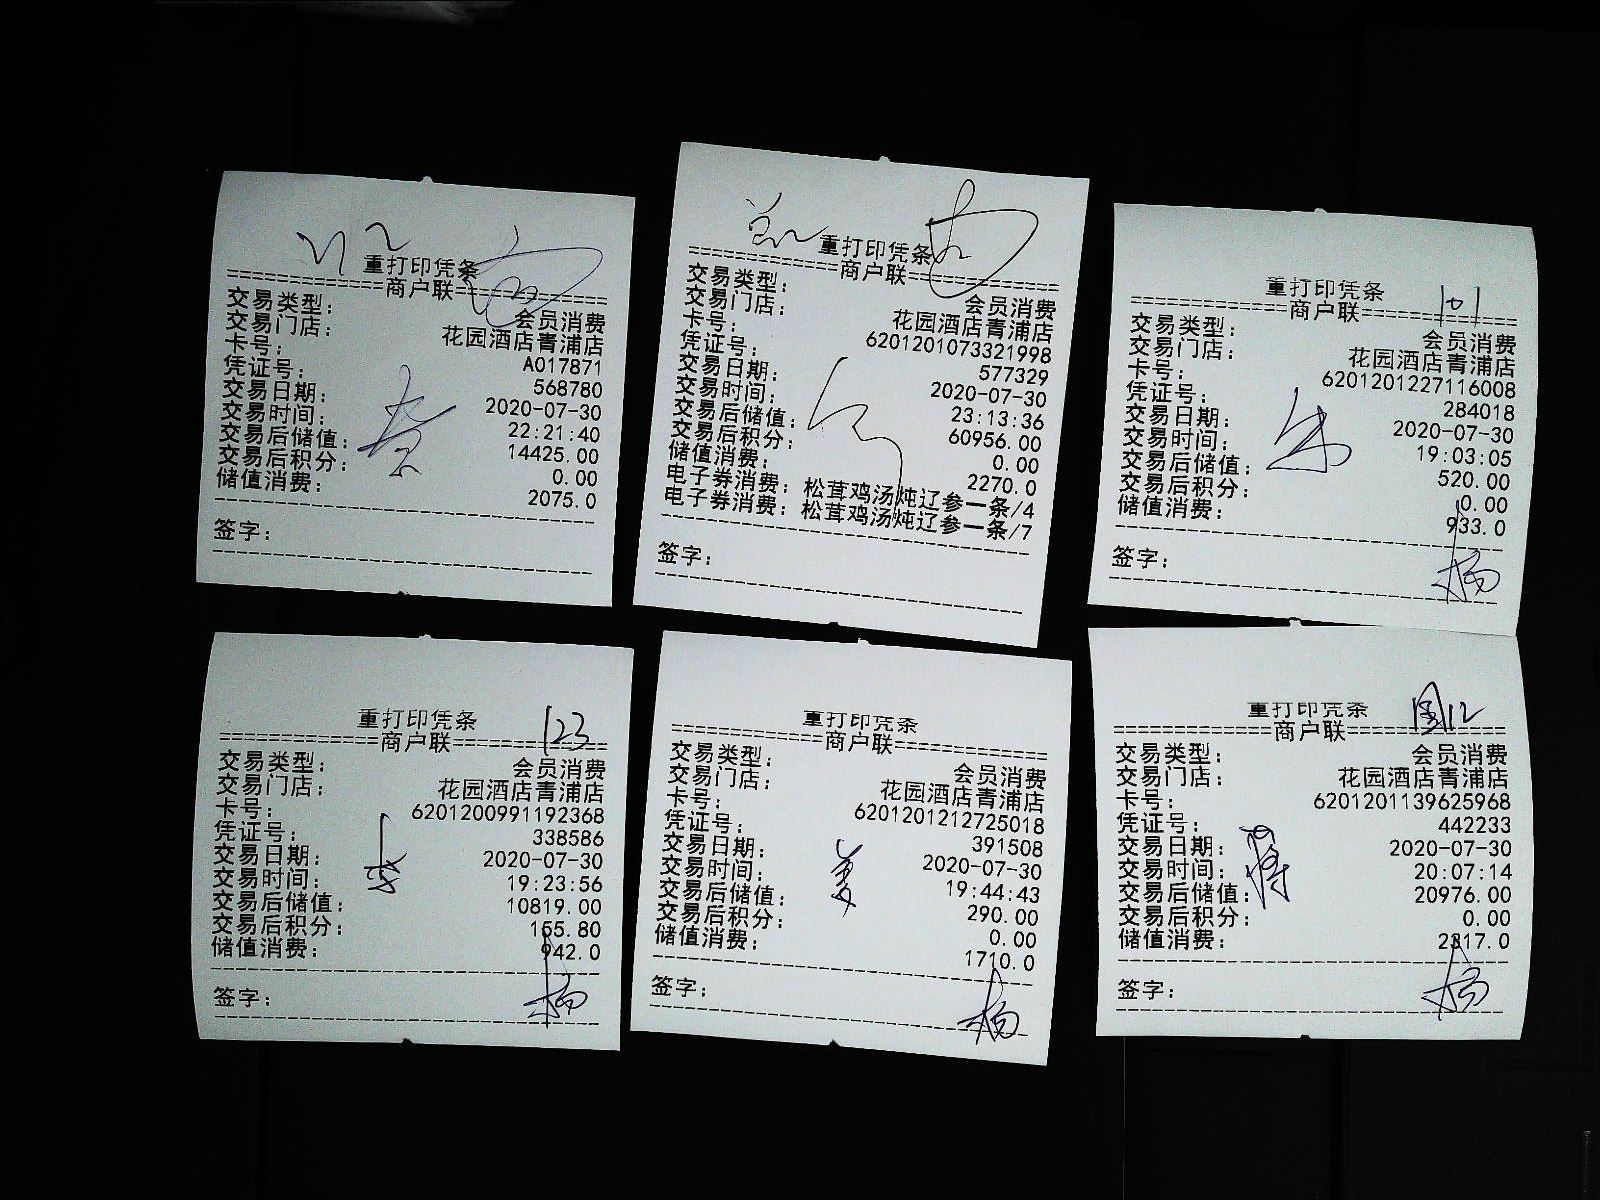 重打印凭条
==========商户联==========
交易类型: 会员消费
交易门店: 花园酒店青浦店
卡号: A017871
凭证号: 568780
交易日期: 2020-07-30
交易时间: 22:21:40
交易后储值: 14425.00
交易后积分: 0.00
储值消费: 2075.0
签字:
重打印凭条
==========商户联==========
交易类型: 会员消费
交易门店: 花园酒店青浦店
卡号: 6201201073321998
凭证号: 577329
交易日期: 2020-07-30
交易时间: 23:13:36
交易后储值: 60956.00
交易后积分: 0.00
储值消费: 2270.0
电子券消费: 松茸鸡汤炖辽参一条/4
电子券消费: 松茸鸡汤炖辽参一条/7
签字:
重打印凭条
101
==========商户联==========
交易类型: 会员消费
交易门店: 花园酒店青浦店
卡号: 6201201227116008
凭证号: 284018
交易日期: 2020-07-30
交易时间: 19:03:05
交易后储值: 520.00
交易后积分: 0.00
储值消费: 933.0
签字: 杨
重打印凭条
123
==========商户联==========
交易类型: 会员消费
交易门店: 花园酒店青浦店
卡号: 6201200991192368
凭证号: 338586
交易日期: 2020-07-30
交易时间: 19:23:56
交易后储值: 10819.00
交易后积分: 155.80
储值消费: 942.0
签字: 杨
重打印凭条
==========商户联==========
交易类型: 会员消费
交易门店: 花园酒店青浦店
卡号: 6201201212725018
凭证号: 391508
交易日期: 2020-07-30
交易时间: 19:44:43
交易后储值: 290.00
交易后积分: 0.00
储值消费: 1710.0
签字: 杨
重打印凭条
==========商户联==========
交易类型: 会员消费
交易门店: 花园酒店青浦店
卡号: 6201201139625968
凭证号: 442233
交易日期: 2020-07-30
交易时间: 20:07:14
交易后储值: 20976.00
交易后积分: 0.00
储值消费: 2317.0
签字: 杨